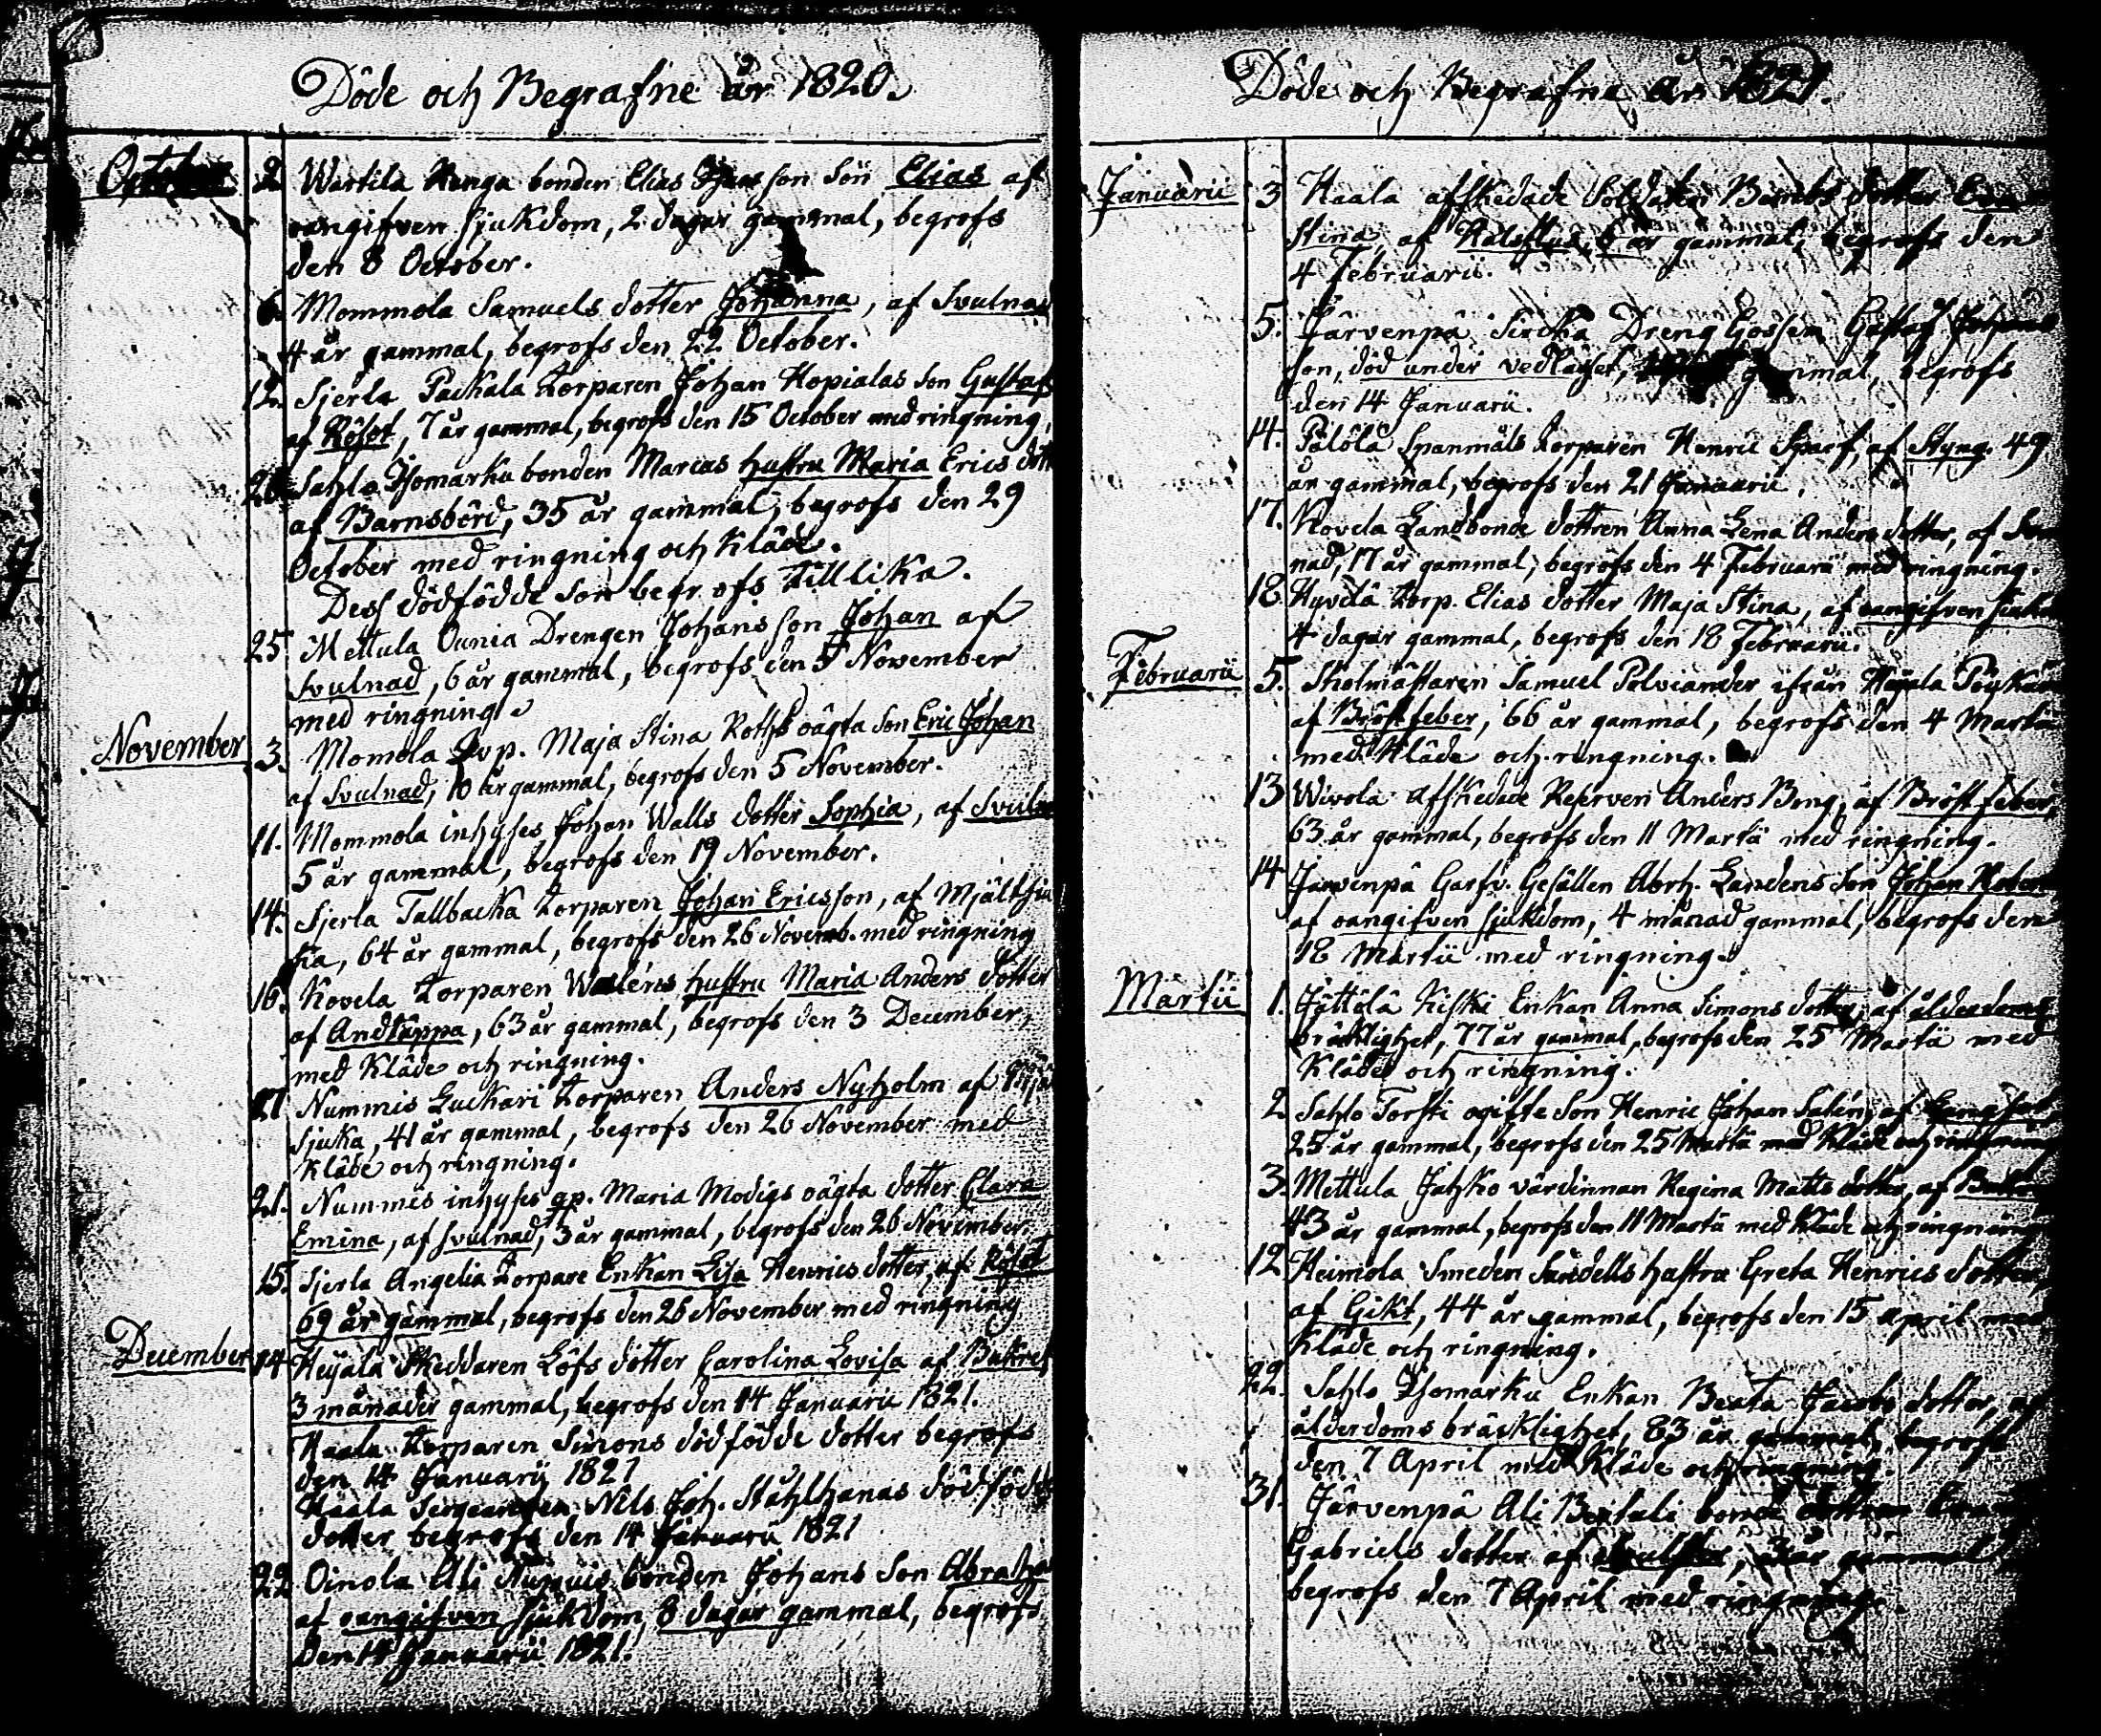 Döde och Begrafne år 1820.
October 2. Wartila Henga bonden Elias son Son Elias af
oangifven sjukdom, 2 dagar gammal, begrofs
den 8 October.
6. Mommola Samuels dotter Johanna, af Svulnad
4 år gammal, begrofs den 22 October.
12. Sjerla Packala Torparen Johan Hopialas Son Gustaf
af Rösot, 7 år gammal, begrofs den 15 October med ringning,
Sahlo Isomarku bonden Marcus hustru Maria Erics dott
af Barnsbörd, 35 år gammal, begrofs den 29
October med ringning och Kläde.
Dess dödfödde Son begrofs tillika.
25 Mettula Ounia Drengen Johans son Johan af
Svulnad, 6 år gammal, begrofs den 5 November
med ringning
November 3. Momola Maja Stina Roths oägta Son Eric Johan
af Svulnad, 10 år gammal, begrofs den 5 November.
11. Mommola inhyses Johan Walls dotter Sophia, af Svuln
5 år gammal, begrofs den 19 November.
14. Sjerla Tallbacka Torparen Johan Ericsson, af Mjältsju
ka, 64 år gammal, begrofs den 26 Novemb. med ringning
16. Kovela Torparen Waléns hustru Maria Anders dotter
af Andtäppa, 63 år gammal, begrofs den 3 December,
med Kläde och ringning.
Nummis Luckari Torparen Anders Nyholm af Mjä
sjuka, 41 år gammal, begrofs den 26 November med
Kläde och ringning.
21. Nummis inhyses qp. Maria Modigs oägta dotter Clara
Emina, af svulnad, 3 år gammal, begrofs den 26 November
15. Sjerla Angelia Torpare Enkan Lisa Henrics dotter, af Rösot
69 år gammal, begrofs den 26 November med ringning
December 14 Heijala Skeddaren Löfs dotter Carolina Lovisa af Bukref
3 månader gammal, begrofs den 14 Januarii 1821.
Haala Torparen Simons dödfödde dotter begrofs
den 14 Januarij 1821
Haala Sergeanten Nils Joh. Ståhlhanas dödfödde
dotter begrofs den 14 Januarii 1821
22 Oinola Ali bonden Johans Son Abraha
af oangifven sjukdom, 8 dagar gammal, begrofs
den 14 Januarii 1821.
Döde och Begrafne år 1821.
Januarii 3 Haala afskedade Soldaten dotter
Stina, af år gammal, begrofs den
4 Februarii.
5. Järvenpä Sircka Dreng Gossen Gustaf Johans
son, död under vedlaget, gammal, begrofs
den 14 Januarii.
14. Pälölä Spanmåls Torparen Henric Sparf, af Styng. 49
år gammal, begrofs den 21 Januarii.
17. Kovela Landbonde dottren Anna Lena Anders dotter, af
nad, 17 år gammal, begrofs den 4 Februarii med ringning.
18 Hyvelä Torp. Elias dotter Maja Stina, af oangifven sjuk
4 dagar gammal, begrofs den 18 Februarii.
Februarii 5. Skolmästaren Samuel Polviander ifrån Heijala
af Bröstfeber, 66 år gammal, begrofs den 4 Martii
med Kläde och ringning.
13 Wivola afskedade Reserven Anders Bong, af Bröstfeber,
63 år gammal, begrofs den 11 Martii med ringning.
14 Jarvenpä Garfv. Gesällen Abrh. Landens Son Johan
af oangifven sjukdom, 4 månad gammal, begrofs den
18 Martii med ringning.
Martii 1. Jättölä Kiski Enkan Anna Simons dotter, af ålderdoms
bräcklighet, 77 år gammal, begrofs den 25 Martii med
Kläde och ringning.
2. Sahlo Torsti ogifte Son Henric Johan Salén, af
25 år gammal, begrofs den 25 Martii med Kläde och ringning
3. Mettula Jahko värdinnan Regina Matts dotter, af
43 år gammal, begrofs den 11 Martii med Kläde och ringning
12 Heimola Smeden Sundells hustru Greta Henrics dotter,
af Gikt, 44 år gammal, begrofs den 15 April med
Kläde och ringning.
22. Sahlo Isomarku Enkan Beata Jacobs dotter, af
ålderdoms bräcklighet, 83 år gammal, begrofs
den 7 April med Kläde och ringning.
31. Järvenpä Ali bonde
Gabriels dotter af år gammal
begrofs den 7 April med ringning.